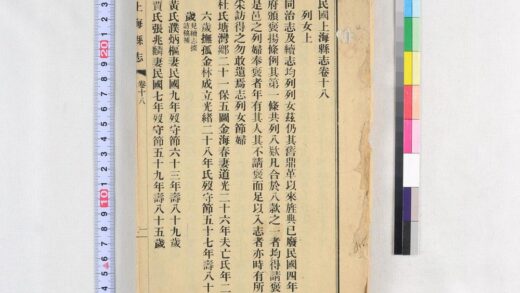 民國上海縣志卷十八
列女上
同治志及續志均列列女茲仍其舊鼎革以來旌典已廢民國四年
府頒褒揚條例其第一條共列八款凡合於八款之一者均得請褒
是邑之列婦奉褒者年有其人其不請褒而足以入志者亦時有所
朱訪得之勿敢遺焉志列女節婦
杜氏塘灣鄉二十一保五圖金海春妻道光二十六年夫亡氏年二
六歲撫孤金林成立光緒二十八年氏歿守節五十七年壽八十
歲
黃氏濮炳樞妻民國九年歿守節六十三年壽八十九歲
賈氏張兆麟妻民國七年歿守節五十九年壽八十五歲
上海縣志
卷十八
一